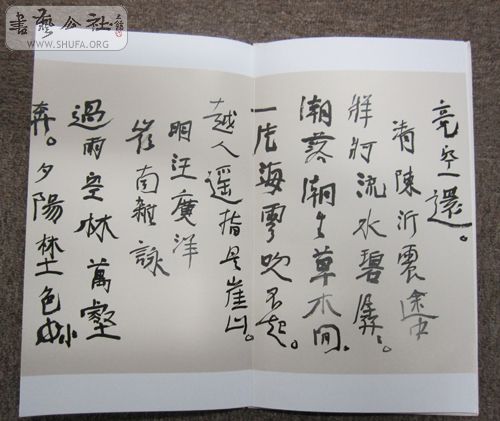 書藝公社
WWW.SHUFA.ORG
亮空還。
清陳沂震途中
牂牁流水碧孱〻。
潮落潮生草木間。
一片海雲吹不起。
越人遥指是崖山。
明汪廣洋
岺南雜詠
過雨空林萬壑
奔。夕陽埜色小